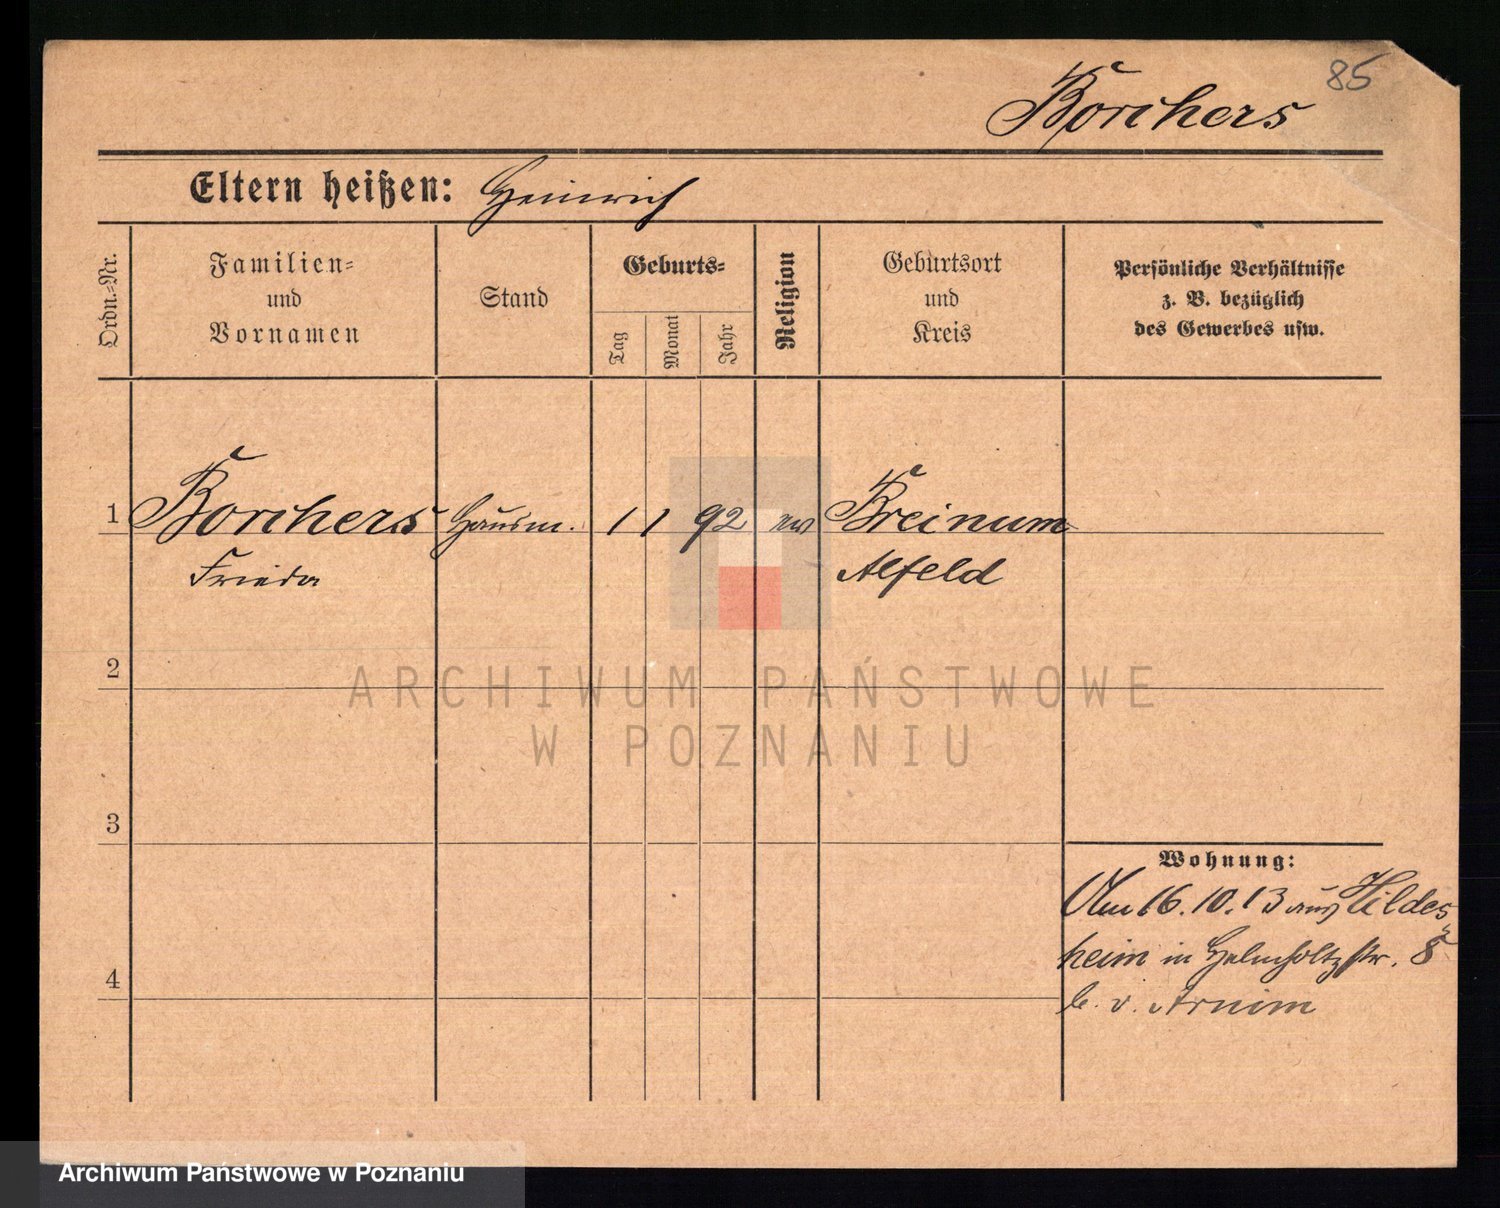 85
Borchers
Eltern heißen: Heinrich
Ordn.-Nr.
Familien-
und
Vornamen
Stand
Geburts-
Tag
Monat
Jahr
Religion
Geburtsort
und
Kreis
Persönliche Verhältnisse
z. B. bezüglich
des Gewerbes usw.
1 Borchers Hausm. 1 1 92 ev Breinum
Frieda Alfeld
2
ARCHIWUM PAŃSTWOWE
W POZNANIU
3
Wohnung:
Am 16.10.13 aus Hildes
heim in Helmholtzstr. 8
b. v. Arnim
4
Archiwum Państwowe w Poznaniu